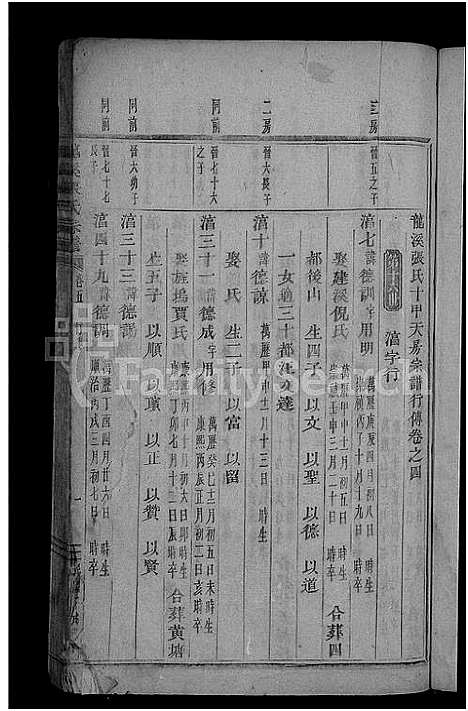 龍溪張氏十甲天房宗譜行傳卷之四
滈字行
三房
晉五之子
滈七 諱德訓 字用明 萬曆庚辰四月初八日 時生
十月十九日 時卒
娶建溪倪氏 萬曆甲申十一月初五日 時生
壬申三月二十日 時卒 合葬四
都後山 生四子 以文 以聖 以德 以道
一女適三十都汪文達
二房
晉六長子
滈十 諱德諒 萬曆甲申生月十三日 時生
娶 氏 生二子 以富 以留
同前
晉七十六
之子
滈三十一 諱德成 字用後 萬曆癸巳十二月初五日未時生
康熙丙辰正月初二日亥時卒
娶旌塢賈氏 丙申十月初六日卯時生
康熙丁卯七月十二日辰時卒 合葬黄塘
生五子 以順 以璸 以正 以贊 以賢
同前
晉六幼子
滈三十三 諱德謁
同前
晉七十七
長子
滈四十九 諱德調 萬曆丁酉四月廿六日 時生
順治丙戌三月初七日 時卒
FamilySearch